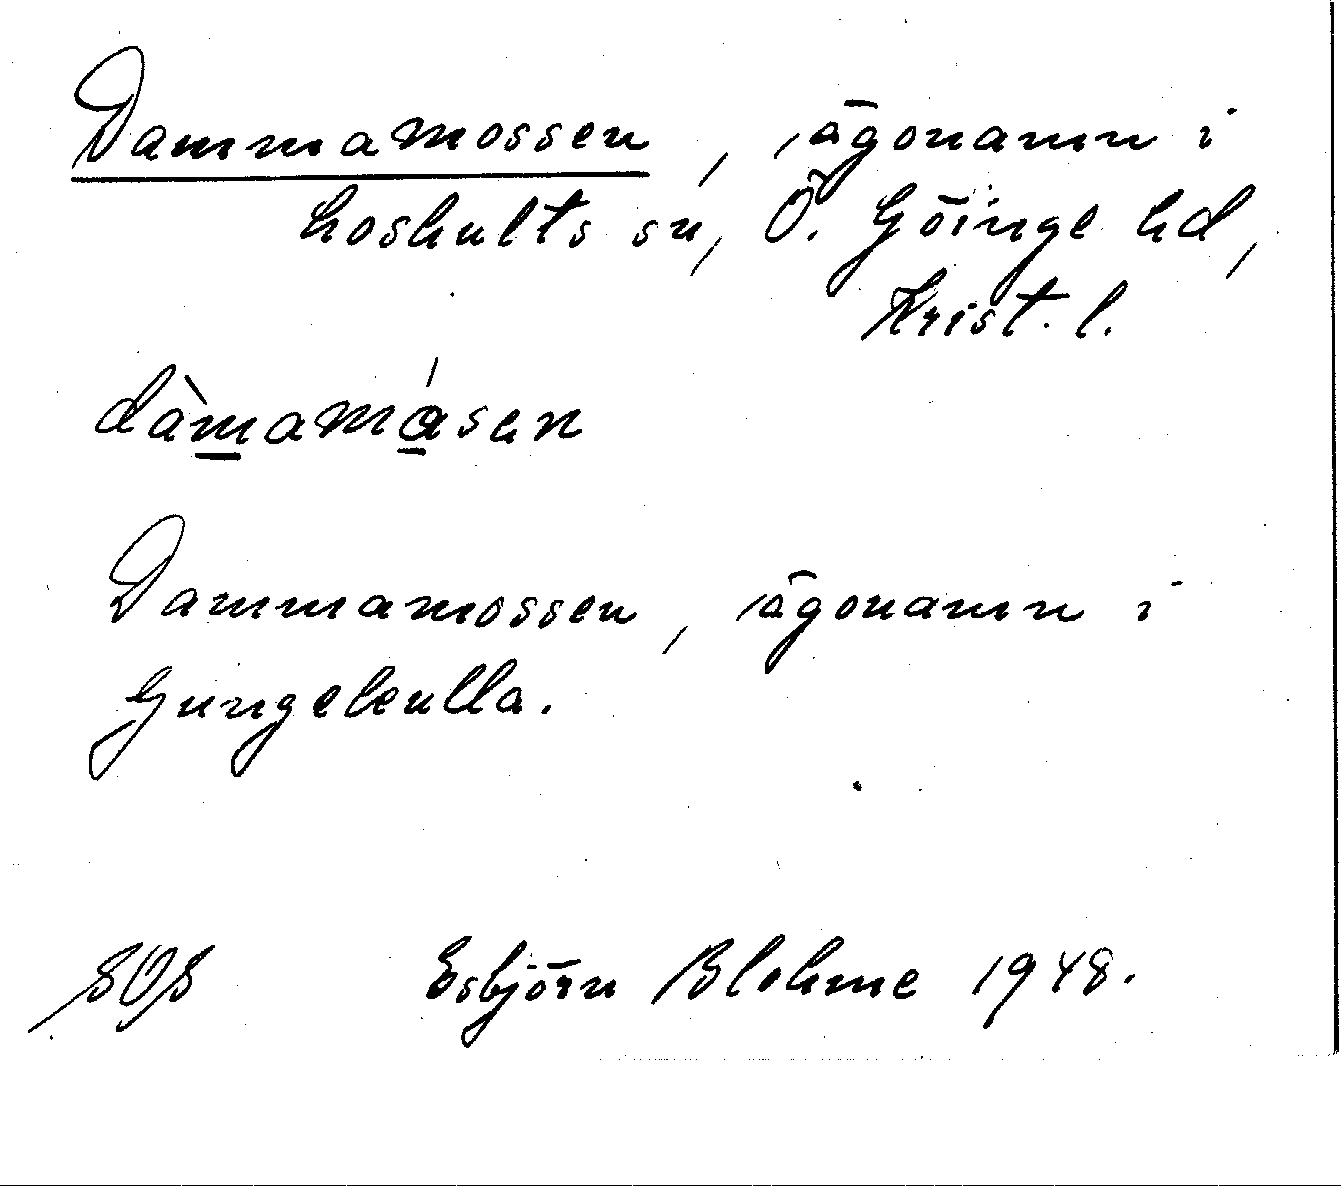 Dammamossen, ägonamn i
Loshults sn, Ö. Göinge hd,
Krist. l.
Dammamossen, ägonamn i
Gungekulla.
SOS Esbjörn Blohme 1948.